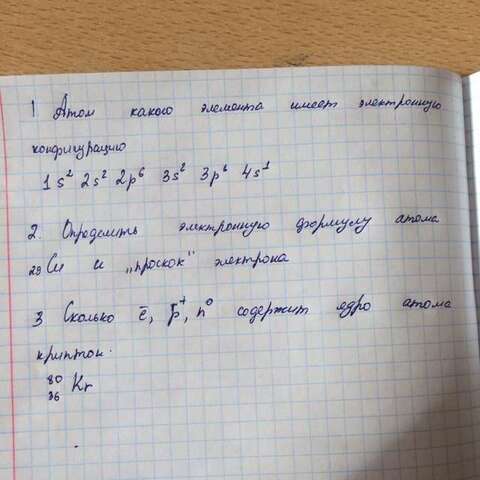 1 Атом какого элемента имеет электронную
конфигурацию
1s² 2s² 2p⁶ 3s² 3p⁶ 4s¹
2. Определить электронную формулу атома
₂₉Cu и „проскок" электрона
3 Сколько ē, p⁺, n⁰ содержит ядро атома
криптон.
⁸⁰₃₆Kr